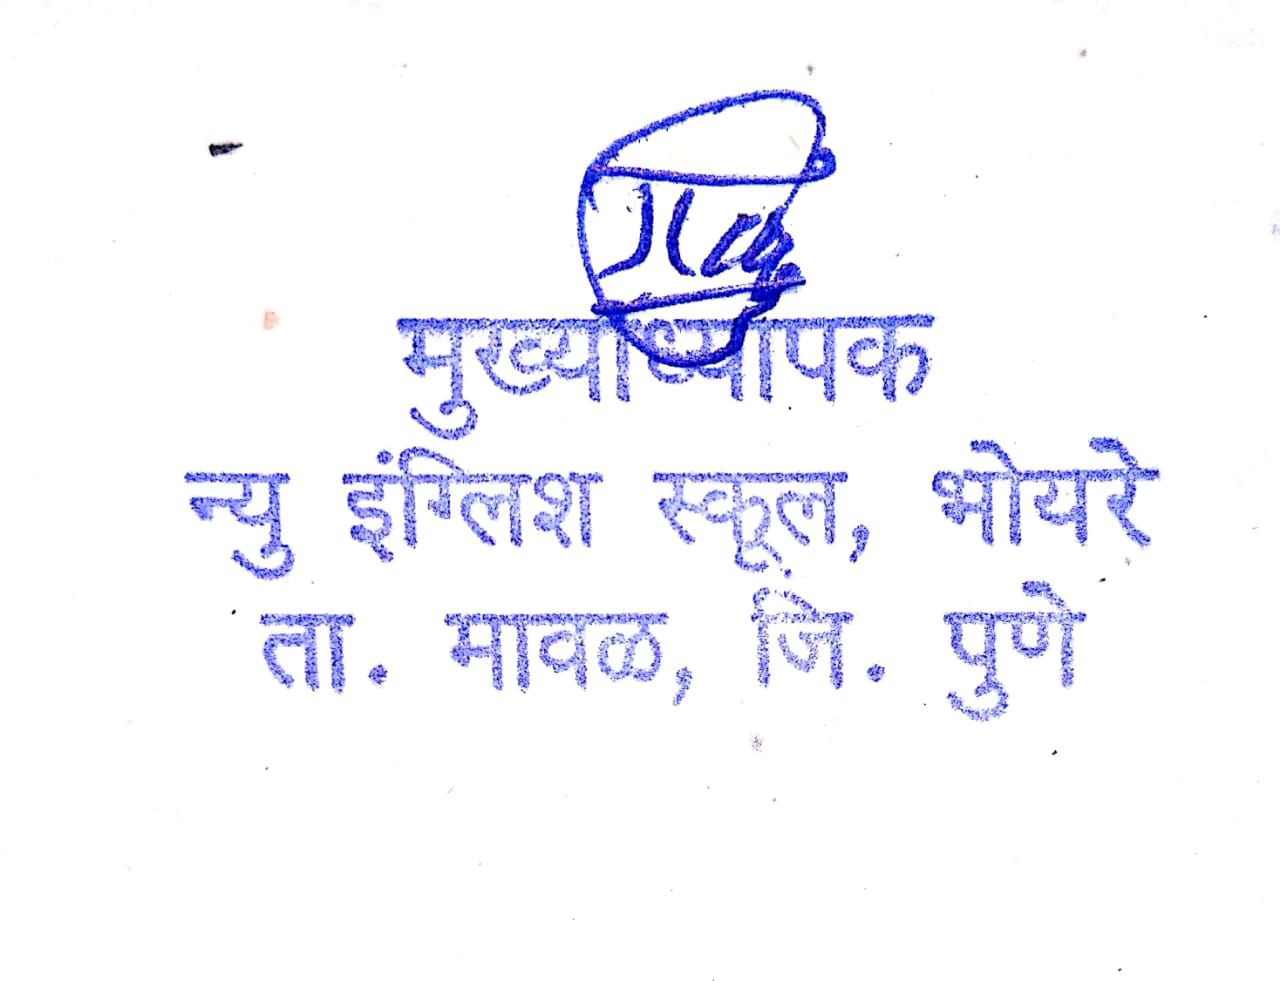 मुख्याध्यापक
न्यु इंग्लिश स्कूल, भोयरे
ता. मावळ, जि. पुणे